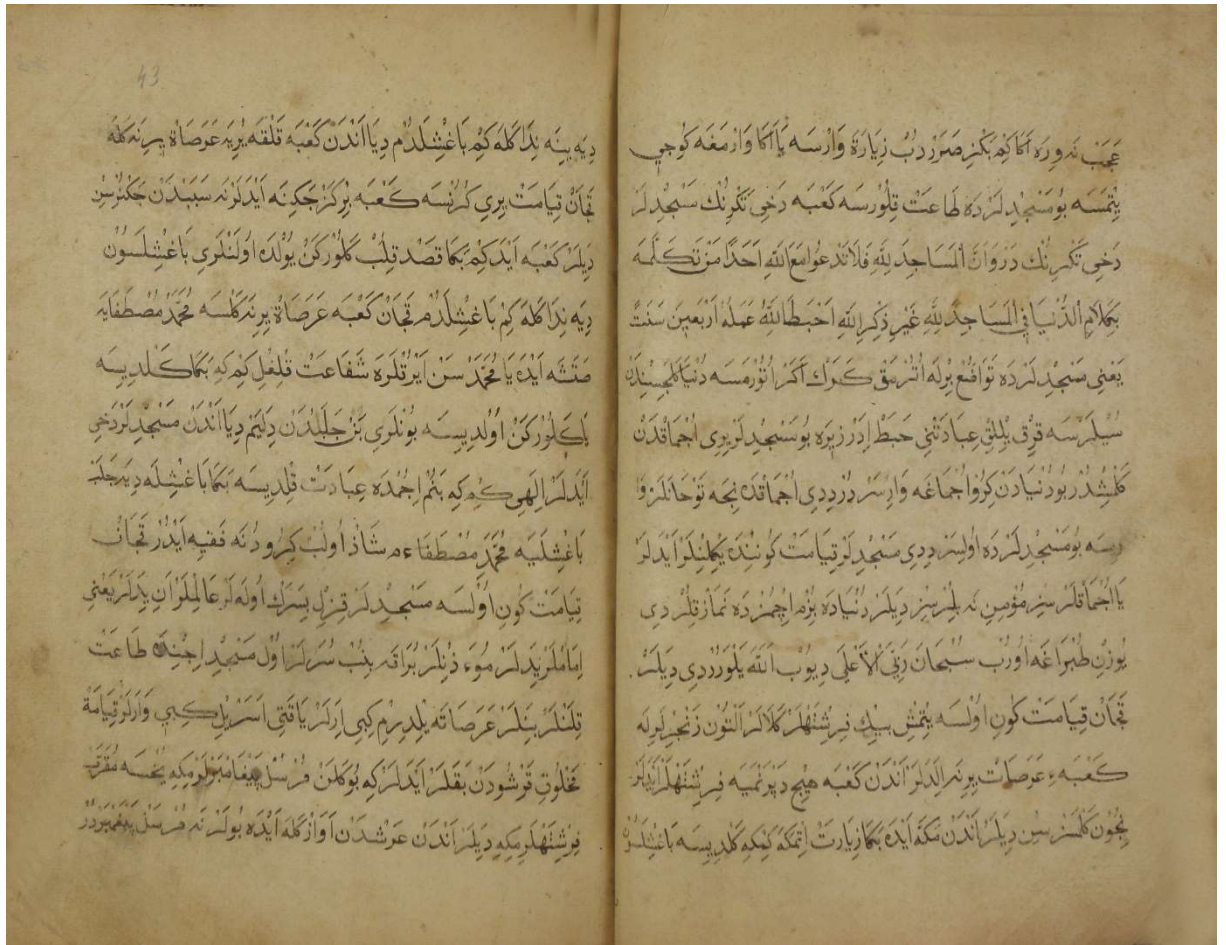 عَجَبْ نَه وِرَه اَكَا كِم بَكْزِ صَرَرْدُبْ زِيَارَةْ وَارْسَه يَا اَكَا وَارْمَغَه كُوجِي
يِتْمَسَه بُو مَسْجِدْلَرْدَه طَاعَتْ قِلُورْسَه كَعْبَه دَخِى تَكْرِنُكْ مَسْجِدْلَرْ
دَخِى تَكْرِنُكْ دَرْ وَاَنَّ الْمَسَاجِدَ لِلّٰهِ فَلَا تَدْعُوا مَعَ اللّٰهِ اَحَدًا مَنْ تَكَلَّمَ
بِكَلَامِ الدُّنْيَا فِى الْمَسَاجِدِ لِلّٰهِ غَيْرِ ذِكْرِ اللّٰهِ اَحْبَطَ اللّٰهُ عَمَلَهُ اَرْبَعِينَ سَنَتً
يَعْنِى مَسْجِدْلَرْدَه تَوَاضُعْ بِرْلَه اُتُرْمَقْ كَرَكْ اَكَرْ اُتُورْمَسَه دُنْيَا كَلِجِسِنْدَنْ
سُيْلَرْسَه قِرْقْ يِلْلِقْ عِبَادَتِنِى حَبَطْ اِدَرْ زِيرَه بُو مَسْجِدْلَرْ يِرِى اُجْمَاقْدَنْ
كَلْمِشْدُرْ بُو دُنْيَادَنْ كِرُو اُجْمَاغَه وَارِسَرْدُرْ دِدِى اُجْمَاقْدَه نِجَه نُوحَانْلَرْ وَا
رسَه بُو مَسْجِدْلَرْدَه اُولِسَرْ دِدِى مَسْجِدْلَرْ قِيَامَتْ كُونِنْدَه يَكْلِنِلَرْ اَيْدَلَرْ
يَا اُجْمَاقْلَرْ سِزْ مُؤْمِنِ نَه بِلُرْسِزْ دِيَلَرْ دُنْيَادَه بِزُمْ اِچِمُزْدَه نَمَازْ قِلُرْدِى
يُوزِنْ طُبْرَاغَه اُورُبْ سُبْحَانَ رَبِّىَ الْاَعْلَى دِيُوبْ اَللّٰه يَلْوَرُرْدِى دِيَلَرْ
قَچَانْ قِيَامَتْ كُونِ اُولْسَه يِتْمِشْ بِيكْ فِرِشْتَهْلَرْ كَلَالَرْ اَلْتُونْ زَنْجِرْلَرِلَه
كَعْبَه ءِ عَرَصَاتْ يِرِنَه اِلَدَلَرْ اَنْدَنْ كَعْبَه هِيچْ دَپْرَنْمَيَه فِرِشْتَهْلَرْ اَيْدَلَرْ
نِچُونْ كَلْمَزْسِنْ دِيَلَرْ اَنْدَنْ مَكَّه اَيْدَه بَكَا زِيَارَتْ اِتْمَكَه كِمْكِه كَلْدِيسَه بَاغِشْلَسُنْ
دِيَه يِنَه نِدَا كَلَه كِمْ بَاغِشْلَدُمْ دِيَا اَنْدَنْ كَعْبَه قَلْقَه يُرِيَه عَرَصَاةْ يِرِنَه كَلَه
قَچَانْ قِيَامَتْ يِرِى كُرُنْسَه كَعْبَه بِرْ كَزْ چَكِنَه اَيْدَلَرْ نَه سَبَبْدَنْ چَكِنُرْسِنْ
دِيَلَرْ كَعْبَه اَيْدَ كِمْ بَكَا قَصْدْ قِلُبْ كَلُورْكَنْ يُولْدَه اُولَنْلَرِى بَاغِشْلَسُونْ
دِيَه نِدَا كَلَه كِمْ بَاغِشْلَدُمْ قَچَانْ كَعْبَه عَرَصَاةْ يِرِنَه كَلْسَه مُحَمَّدْ مُصْطَفَايَه
صَتَشَه اَيْدَه يَا مُحَمَّدْ سَنْ اَيْرُقْلَرَه شَفَاعَتْ قِلْغِلْ كِمْ كِه بَكَا كَلْدِيسَه
يَا كَلُورْكَنْ اُولْدِيسَه بُونْلَرِى بَنْ جَلَبُدَنْ دِلَيَمْ دِيَا اَنْدَنْ مَسْجِدْلَرْ دَخِى
اَيْدَلَرْ اِلٰهِى كِمْ كِه بَنُمْ اِچُمْدَه عِبَادَتْ قِلْدِيسَه بَكَا بَاغِشْلَه دِيَه جَلَبْ
بَاغِشْلَيَه مُحَمَّدْ مُصْطَفَا ءم شَاذْ اُولُبْ كِرُو دُنَه فَقِيه اَيْدُرْ قَچَانْ
قِيَامَتْ كُونِ اُولْسَه مَسْجِدْلَرْ قِزِلْ بِسَرَكْ اُولَه لَرْ عَالِمْلَرْ اَنِ يَدَلَرْ يَعْنِى
اِمَامْلَرْ يَدَلَرْ مُوءَذِنْلَرْ بُرَاقَه بِنُبْ سُرَلَرْ اُولْ مَسْجِدْ اِچِنْدَه طَاعَتْ
قِلَنْلَرْ بِنَلَرْ عَرَصَاتَه يِلْدِرِمْ كِبِى اِرَلَرْ يَا قَتِى اَسَرْ يِلْ كِبِى وَارَلَرْ قِيَامَةْ
مَخْلُوقِ قَرْشُودَنْ بَقَلَرْ اَيْدَلَرْ كِه بُو كَلَنْ مُرْسَلْ پَيْغَامْبَرْلَرْمِكِه يُخْسَه مُقَرَّبْ
فِرِشْتَهْلَرْمِكِه دِيَلَرْ اَنْدَنْ عَرْشْدَنْ اَوَازْ كَلَه اَيْدَه بُولَرْ نَه مُرْسَلْ پَيْغَمْبَرْدُرْ